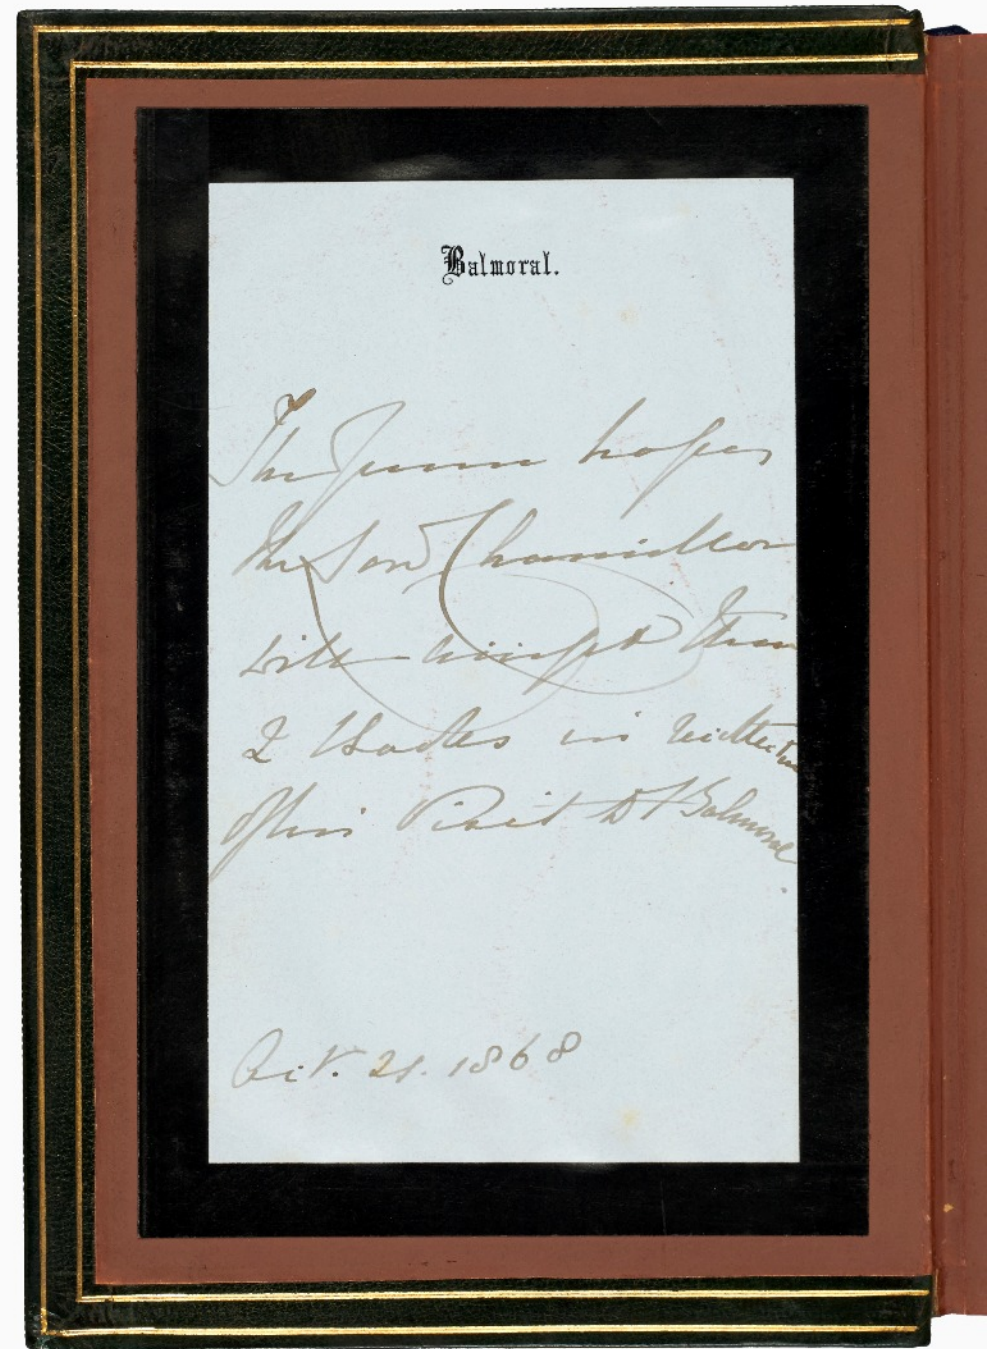 Balmoral.
The Queen hopes
the Lord Chancellor
will accept these
2 Books in recollection
of his Visit to Balmoral
Oct. 21. 1868